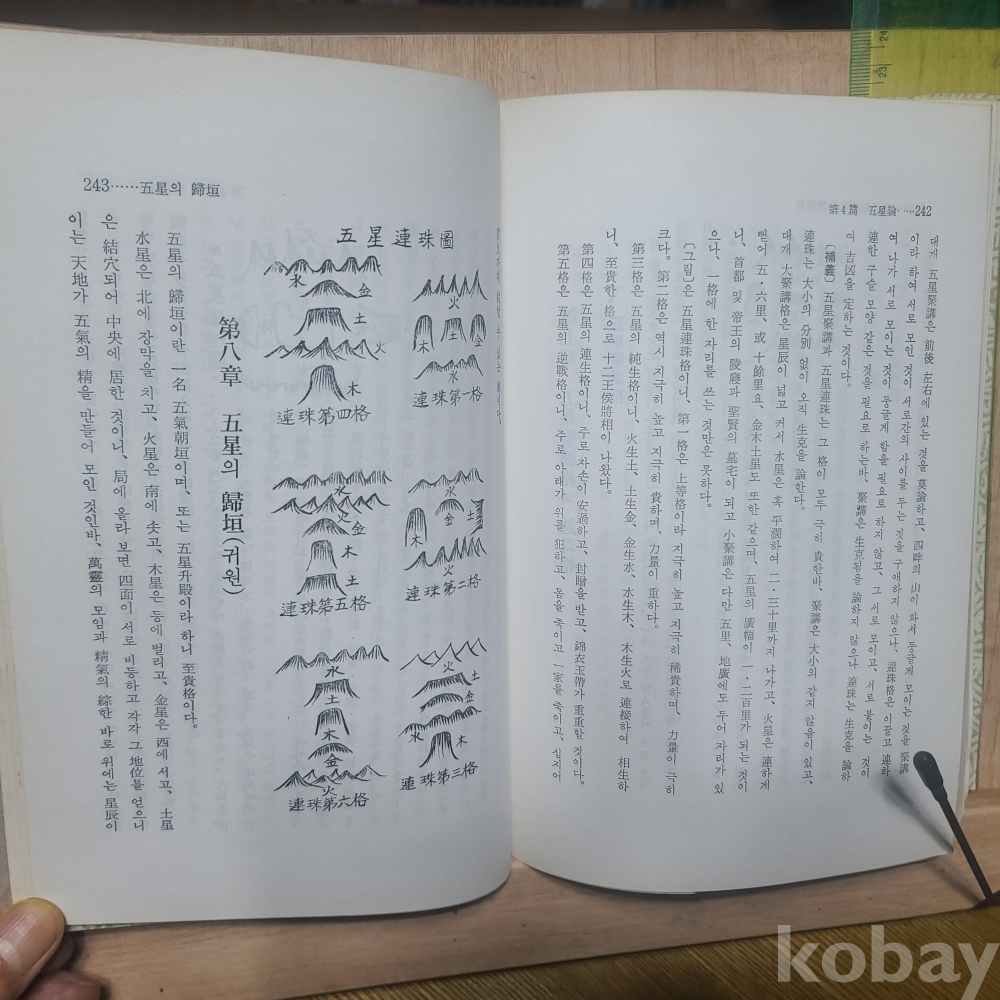 第4篇 五星論……242
대개 五星聚講은 前後 左右에 있는 것을 莫論하고、四畔의 山이 와서 둥글게 모이는 것을 聚講
이라 하여 서로 모인 것이 서로간의 사이를 두는 것을 구애하지 않으나、連珠格은 이끌고 連하
여 나가 서로 모이는 것이 둥글게 함을 필요로 하지 않고、그 서로 모이고、서로 붙이는 것이
連한 구슬 모양 같은 것을 필요로 하는바、聚講은 生克됨을 論하지 않으나 連珠는 生克을 論하
여 吉凶을 定하는 것이다。
〔補義〕五星聚講과 五星連珠는 그 格이 모두 극히 貴한바、聚講은 大小의 같지 않음이 있고、
連珠는 大小의 分別 없이 오직 生克을 論한다。
대개 大聚講格은 星辰이 넓고 커서 水星은 혹 平濶하여 二・三十里까지 나가고、火星은 連하게
뻗어 五・六里、或 十餘里요、金木土星도 또한 같으며、五星의 廣幅이 一・二百里가 되는 것이
니、首都 및 帝王의 陵寢과 聖賢의 墓宅이 되고 小聚講은 다만 五里、地廣에도 두어 자리가 있
으나、一格에 한 자리를 쓰는 것만은 못하다。
〔그림〕은 五星連珠格이니、第一格은 上等格이라 지극히 높고 지극히 稀貴하며、力量이 극히
크다。第二格은 역시 지극히 높고 지극히 貴하며、力量이 重하다。
第三格은 五星의 純生格이니、火生土、土生金、金生水、水生木、木生火로 連接하여 相生하
니、至貴한 格으로 十二王侯將相이 나왔다。
第四格은 五星의 連生格이니、주로 자손이 安過하고、封贈을 받고、錦衣玉帶가 重重할 것이다。
第五格은 五星의 逆戰格이니、주로 아래가 위를 犯하고、몸을 죽이고 一家를 죽이고、심지어
243……五星의 歸垣
五星連珠圖
火
木 土 金
水
連珠第一格
水
金 土
木
火
連珠第二格
火
土
金
水
木
連珠第三格
水
金
土
火
木
連珠第四格
水
火
金
木
土
連珠第五格
水
土
木
金
火
連珠第六格
第八章 五星의 歸垣(귀원)
五星의 歸垣이란 一名 五氣朝垣이며、또는 五星升殿이라 하니 至貴格이다。
水星은 北에 장막을 치고、火星은 南에 솟고、木星은 동에 벌리고、金星은 西에 서고、土星
은 結穴되어 中央에 居한 것이니、局에 올라 보면 四面이 서로 비등하고 각각 그 地位를 얻으니
이는 天地가 五氣의 精을 만들어 모인 것인바、萬靈의 모임과 精氣의 綜한 바로 위에는 星辰이
kobay